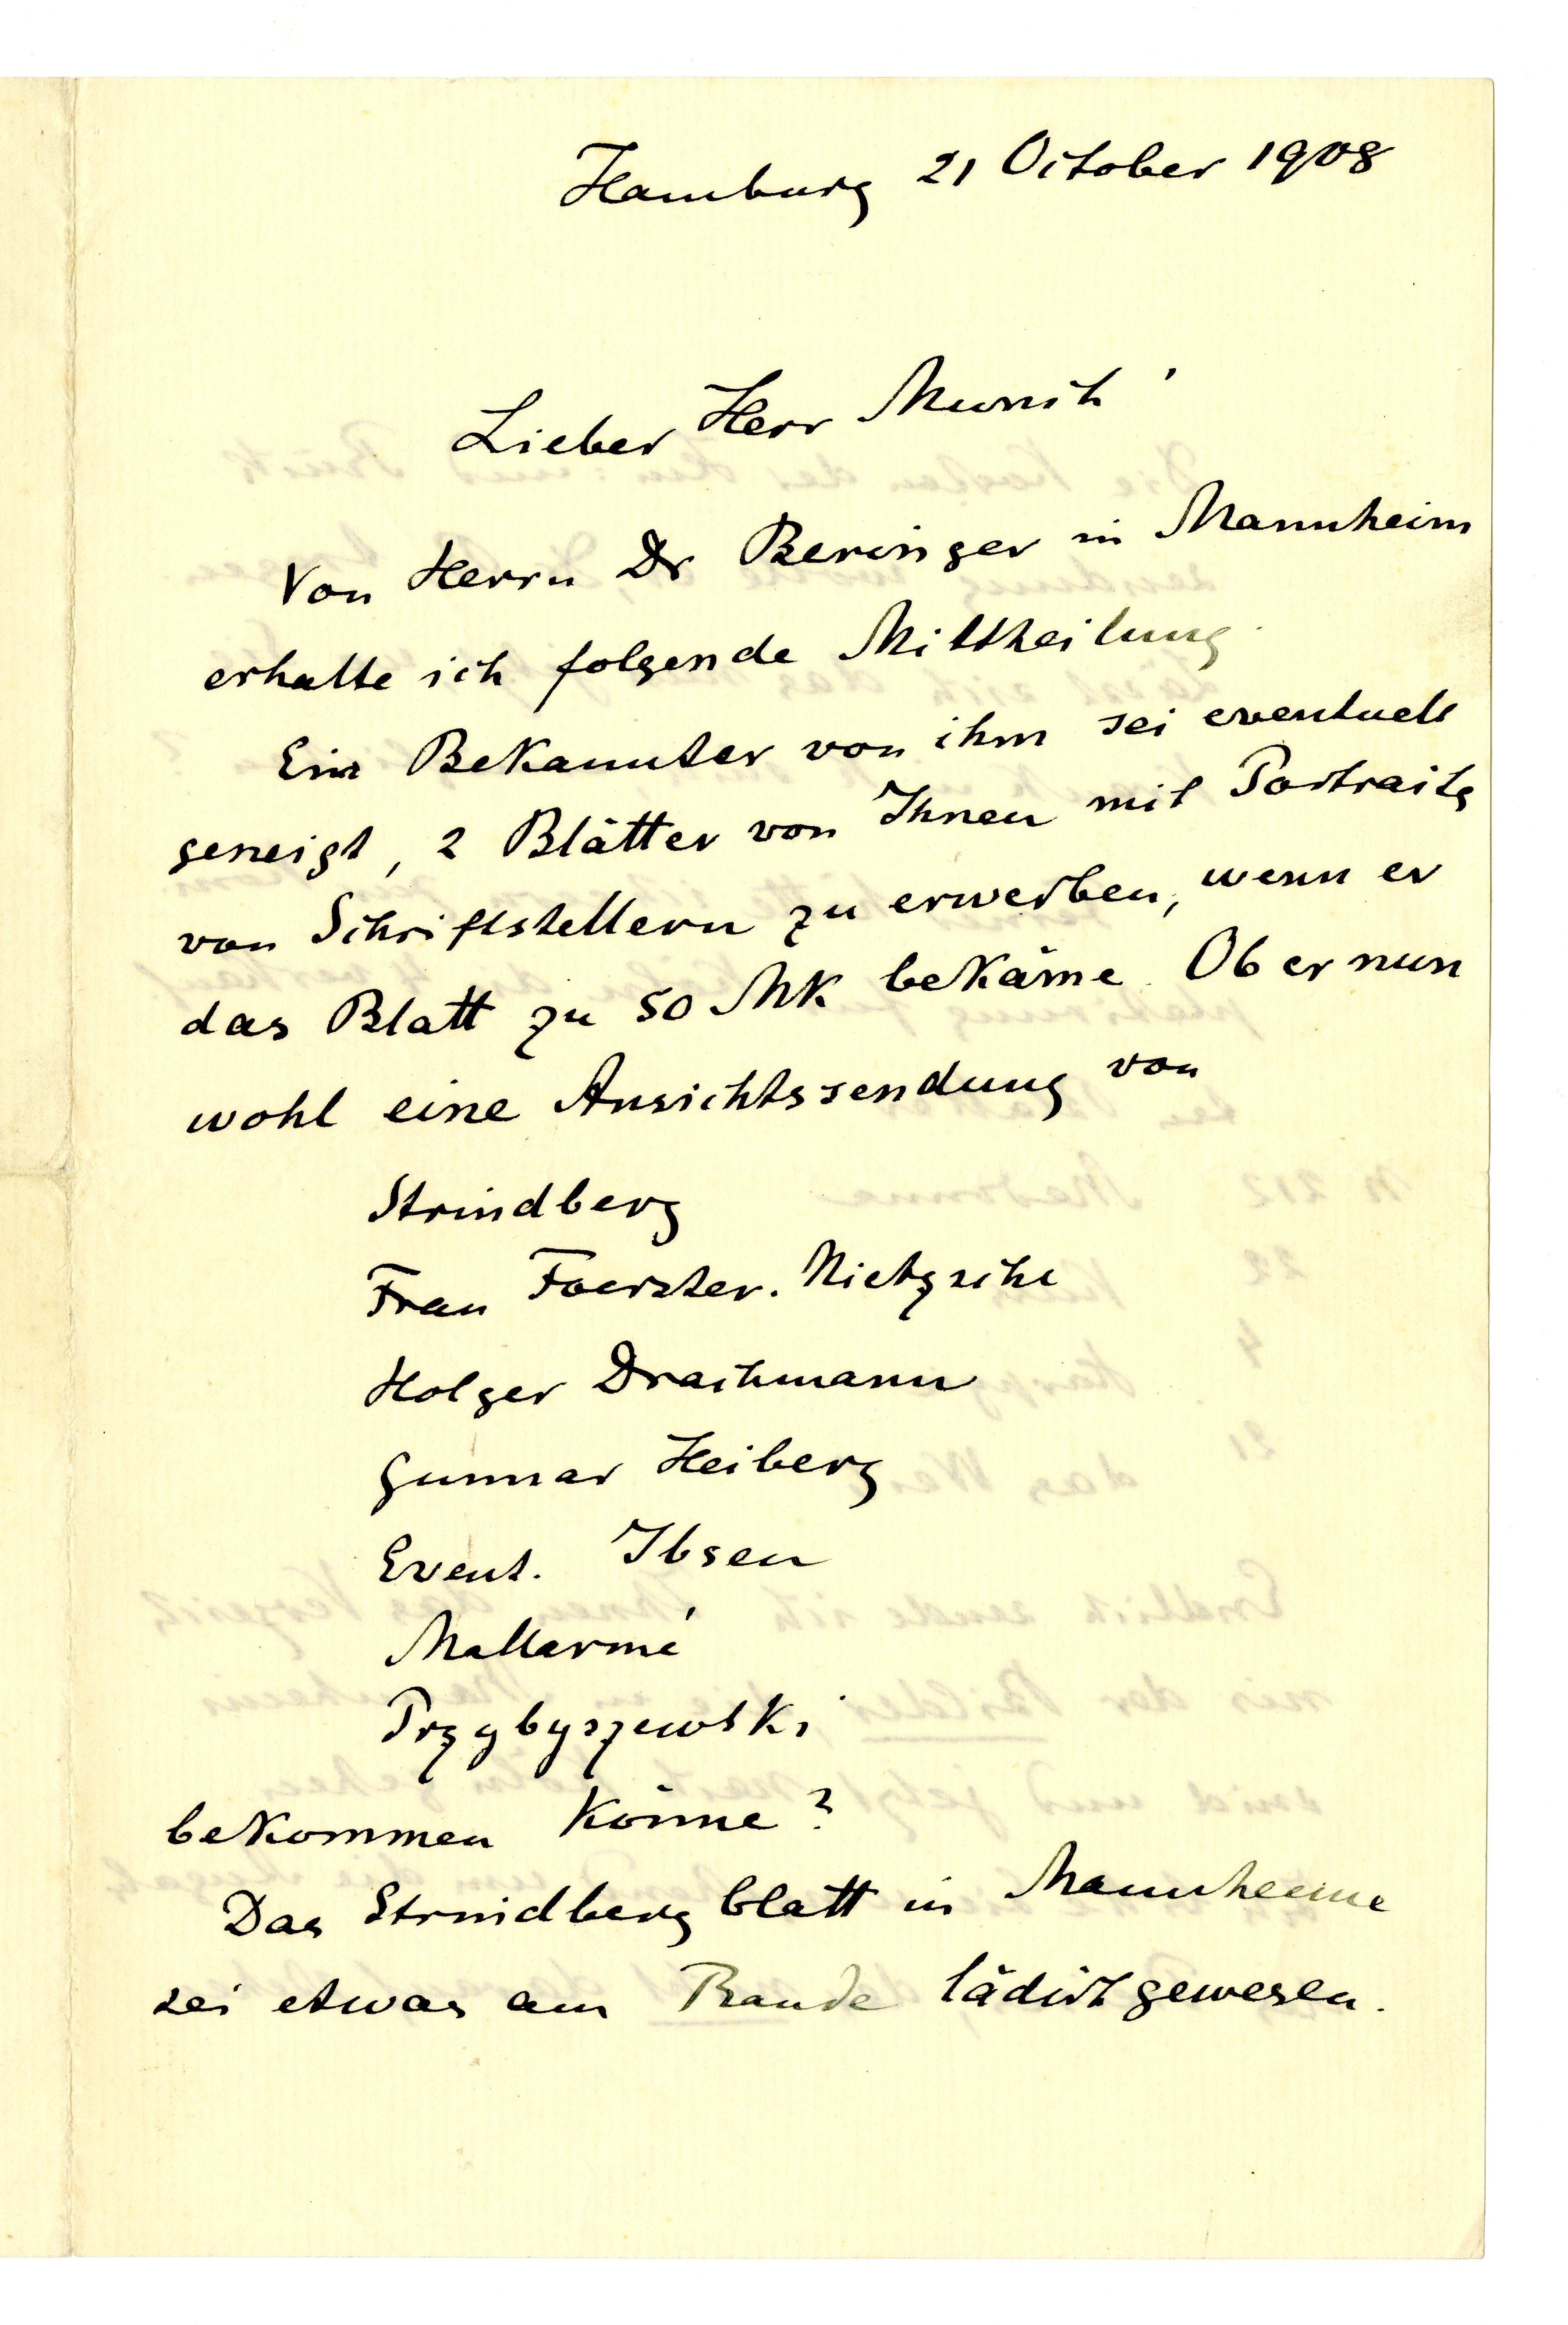 Hamburg 21 October 1908
Lieber Herr Munch'
Von Herrn Dr Beringer in Mannheim
erhalte ich folgende Mittheilung.
Ein Bekannter von ihm sei eventuell
geneigt, 2 Blätter von Ihnen mit Portraits
von Schriftstellern zu erwerben, wenn er
das Blatt zu 50 Mk bekäme. Ob er nun
wohl eine Ansichtssendung von
Strindberg
Frau Foerster. Nietzsche
Holger Drachmann
Gunnar Heiberg
Event. Ibsen
Mallarmé
Przybyszewski
bekommen könne?
Das Strindbergblatt in Mannheim
sei etwas am Rande lädirt gewesen.